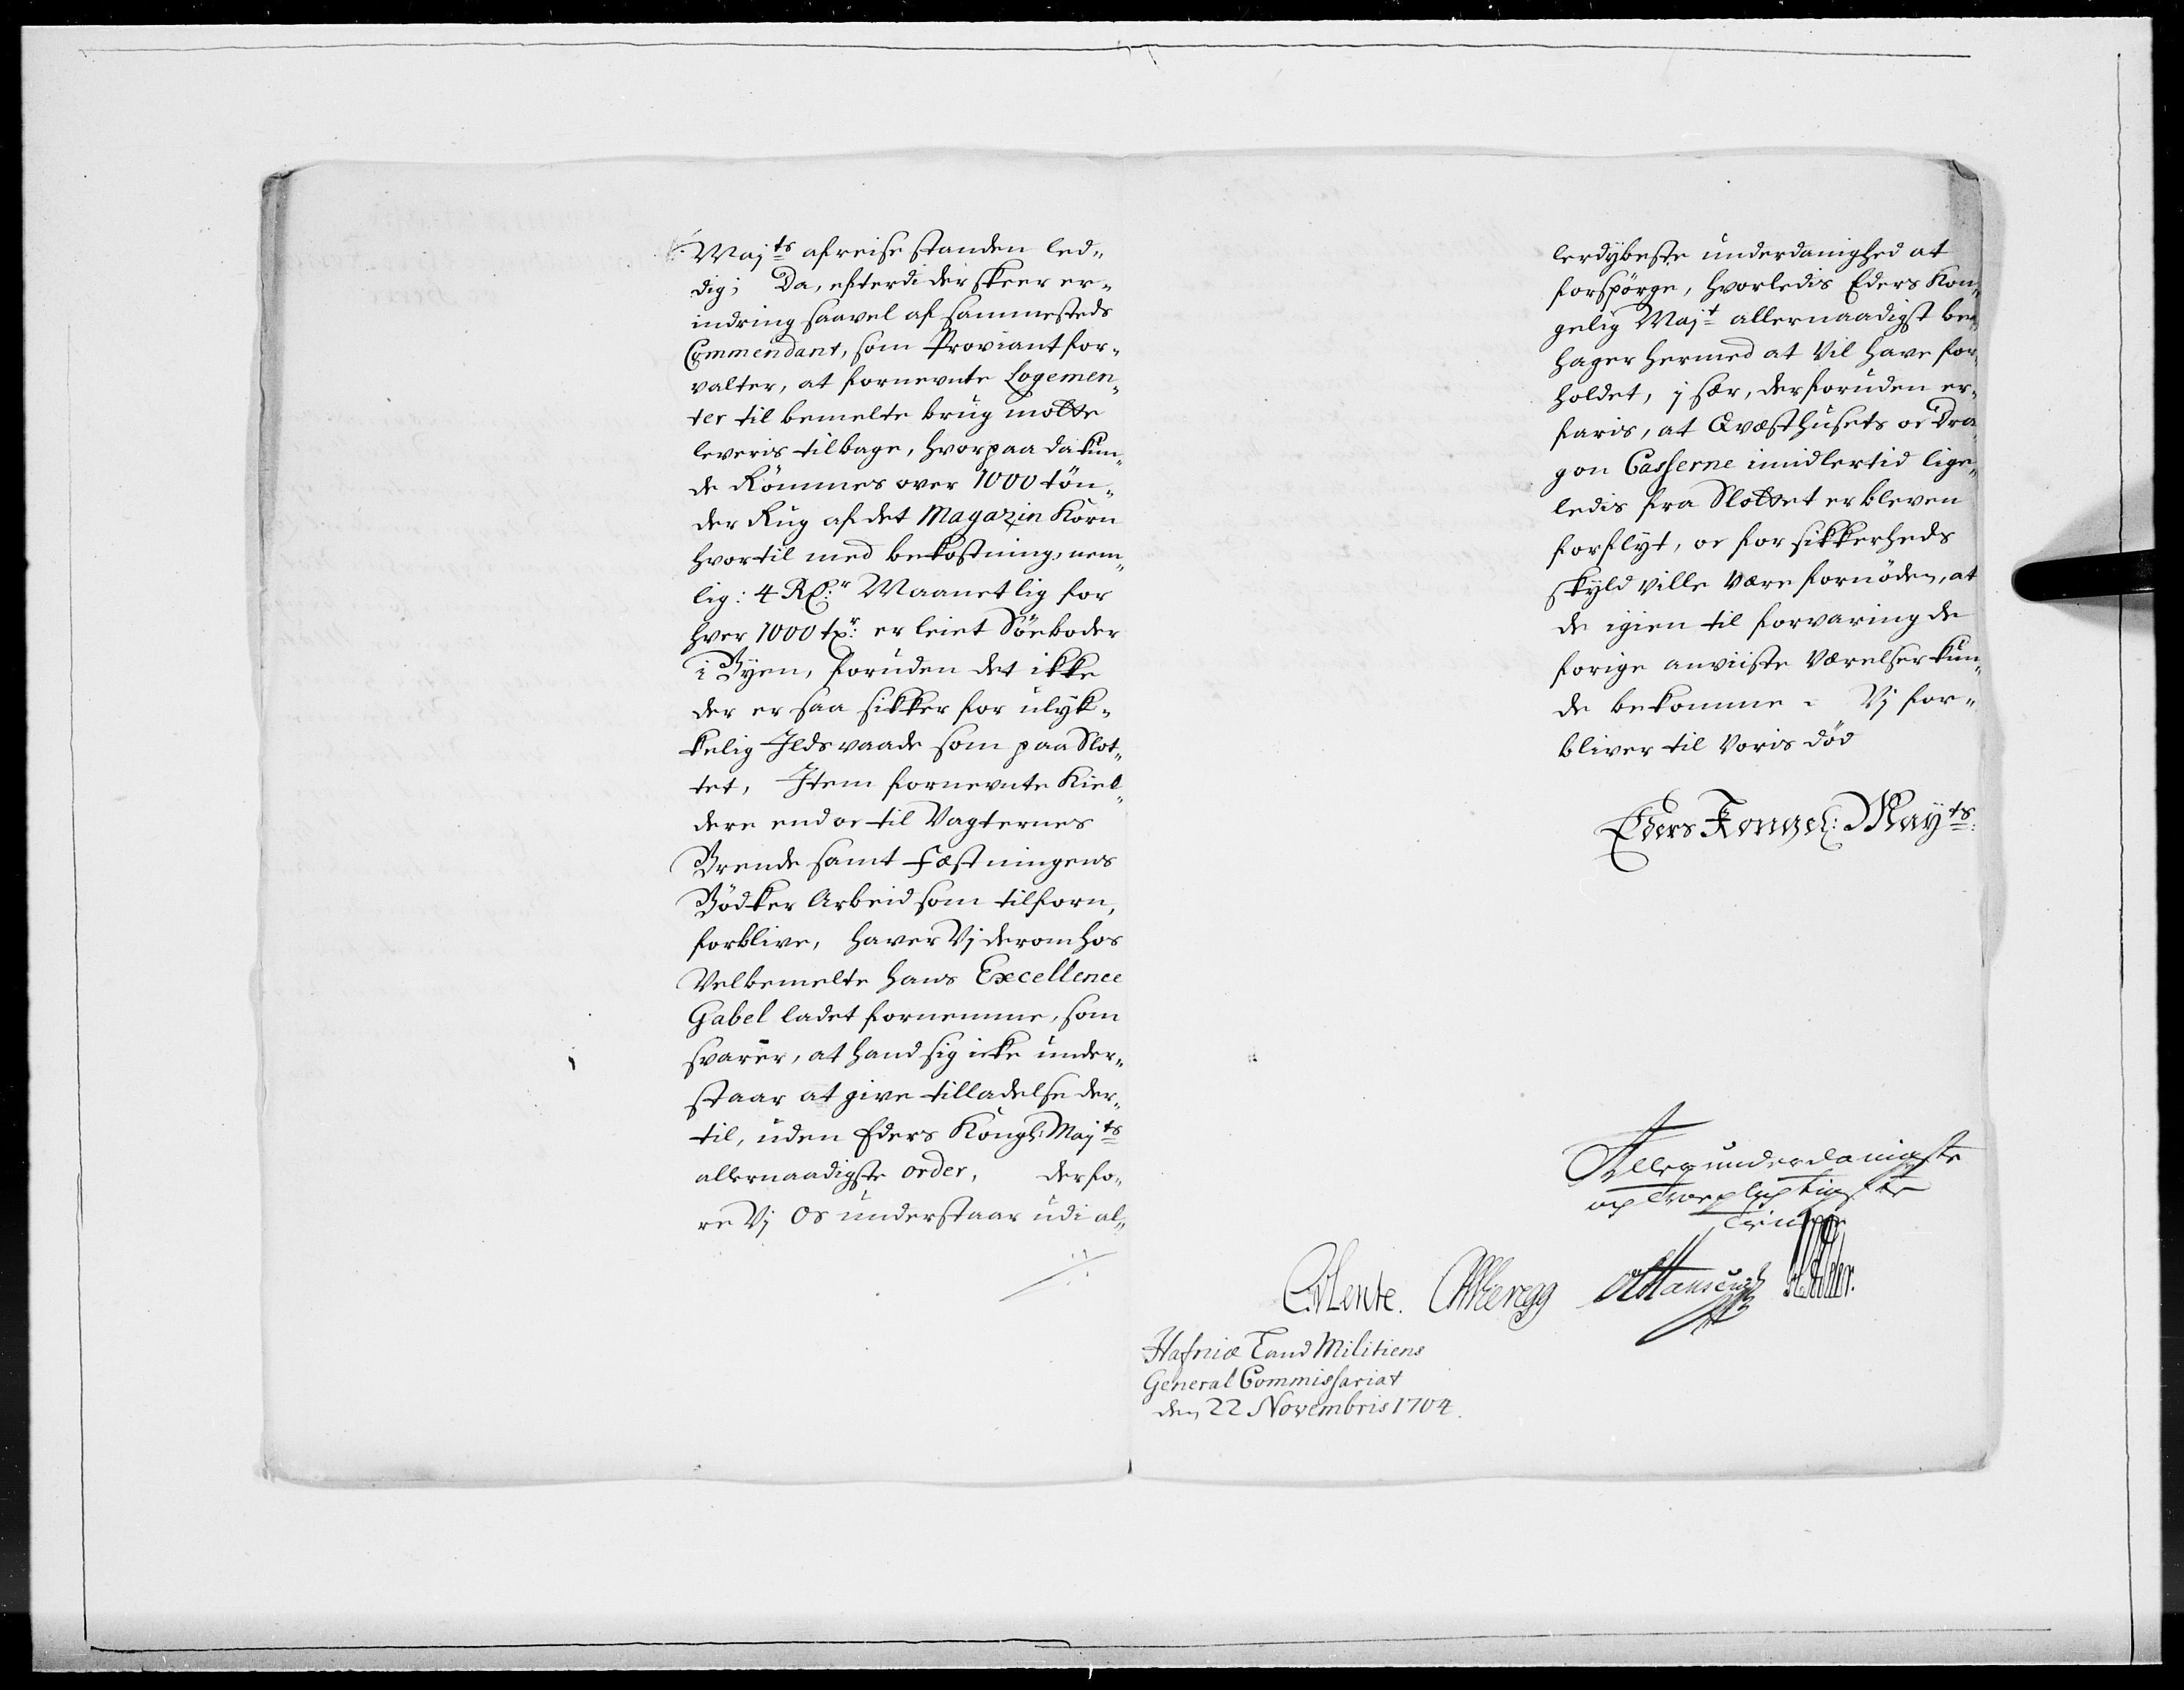 Majts afreise standen led„
dig; Da, efterdi der skeer er„
indring saavel af sammesteds
Commendant, som Proviantfor„
valter, at fornevnte Logemen„
ter til bemelte brug motte
leveris tilbage, hvorpaa da kun„
de Römmes over 1000 tön„
der Rug af det Magazin Korn
hvortil med bekostning, nem„
lig: 4 Rd:r Maanetlig for
hver 1000 tr: er leiet Söeboder
i Byen, foruden det ikke
der er saa sikker for ulyk„
kelig Ildsvaade som paa Slot„
tet, Item fornevnte Kiel„
dere end oc til Vagternes
Brende samt Fæstningens
Bödker Arbeid som tilforn,
forblive, haver Vj derom hos
Velbemelte hans Excellence
Gabel ladet fornemme, som
svarer, at hand sig icke under„
staar at give tilladelse der„
til, uden Eders Kongl: Majts
allernaadigste order, derfo„
re Vj Os understaar udi al„
lerdybeste underdanighed at
forspörge, hvorledis Eders Kon„
gelig Majt allernaadigst be„
hager hermed at Vil have for„
holdet, j sær, derforuden er„
faris, at Qvæsthusets oc Dra„
gon Casserne imidlertid lige„
ledis fra Slottet er bleven
forflyt, oc for sikkerheds
skyld ville være fornöden, at
de igien til forvaring de
forige anviiste Værelser kun„
de bekomme. Vj for„
bliver til Voris död
Eders Kongel: Mayts:
Allerunderdanigste
og Troepligtigste
Tienere
CvLente.
Hafniæ Land Militiens
General Commissariat
den 22 Novembris 1704.